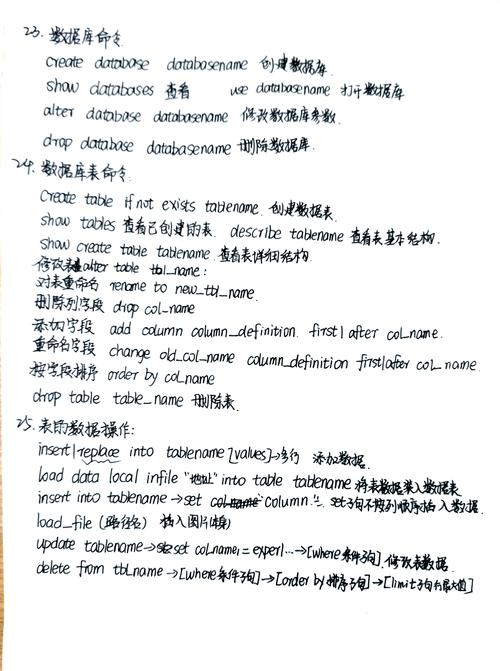 23. 数据库命令.
create database databasename 创建数据库.
show databases 查看 use databasename 打开数据库
alter database databasename 修改数据库参数.
drop database databasename 删除数据库.
24. 数据库表命令.
create table if not exists tablename. 创建数据表.
show tables 查看已创建的表. describe tablename 查看表基本结构.
show create table tablename. 查看表详细结构.
修改表 alter table tbl_name:
对表重命名 rename to new_tbl_name.
删除列字段 drop col_name
添加字段 add column column_definition. first| after col_name.
重命名字段 change old_col_name column_definition first|after col_name.
按字段排序 order by col_name
drop table table_name 删除表.
25. 表的数据操作:
insert|replace into tablename [values]→多行 添加数据.
load data local infile "地址" into table tablename 将表数据装入数据表
insert into tablename→set column = set子句不按列顺序插入数据.
load_file (路径名) 插入图片
update tablename→set col_name1 = exper1...→[where条件子句]. 修改表数据.
delete from tbl_name→[where条件子句]→[order by排序子句]→[limit子句 最大值]